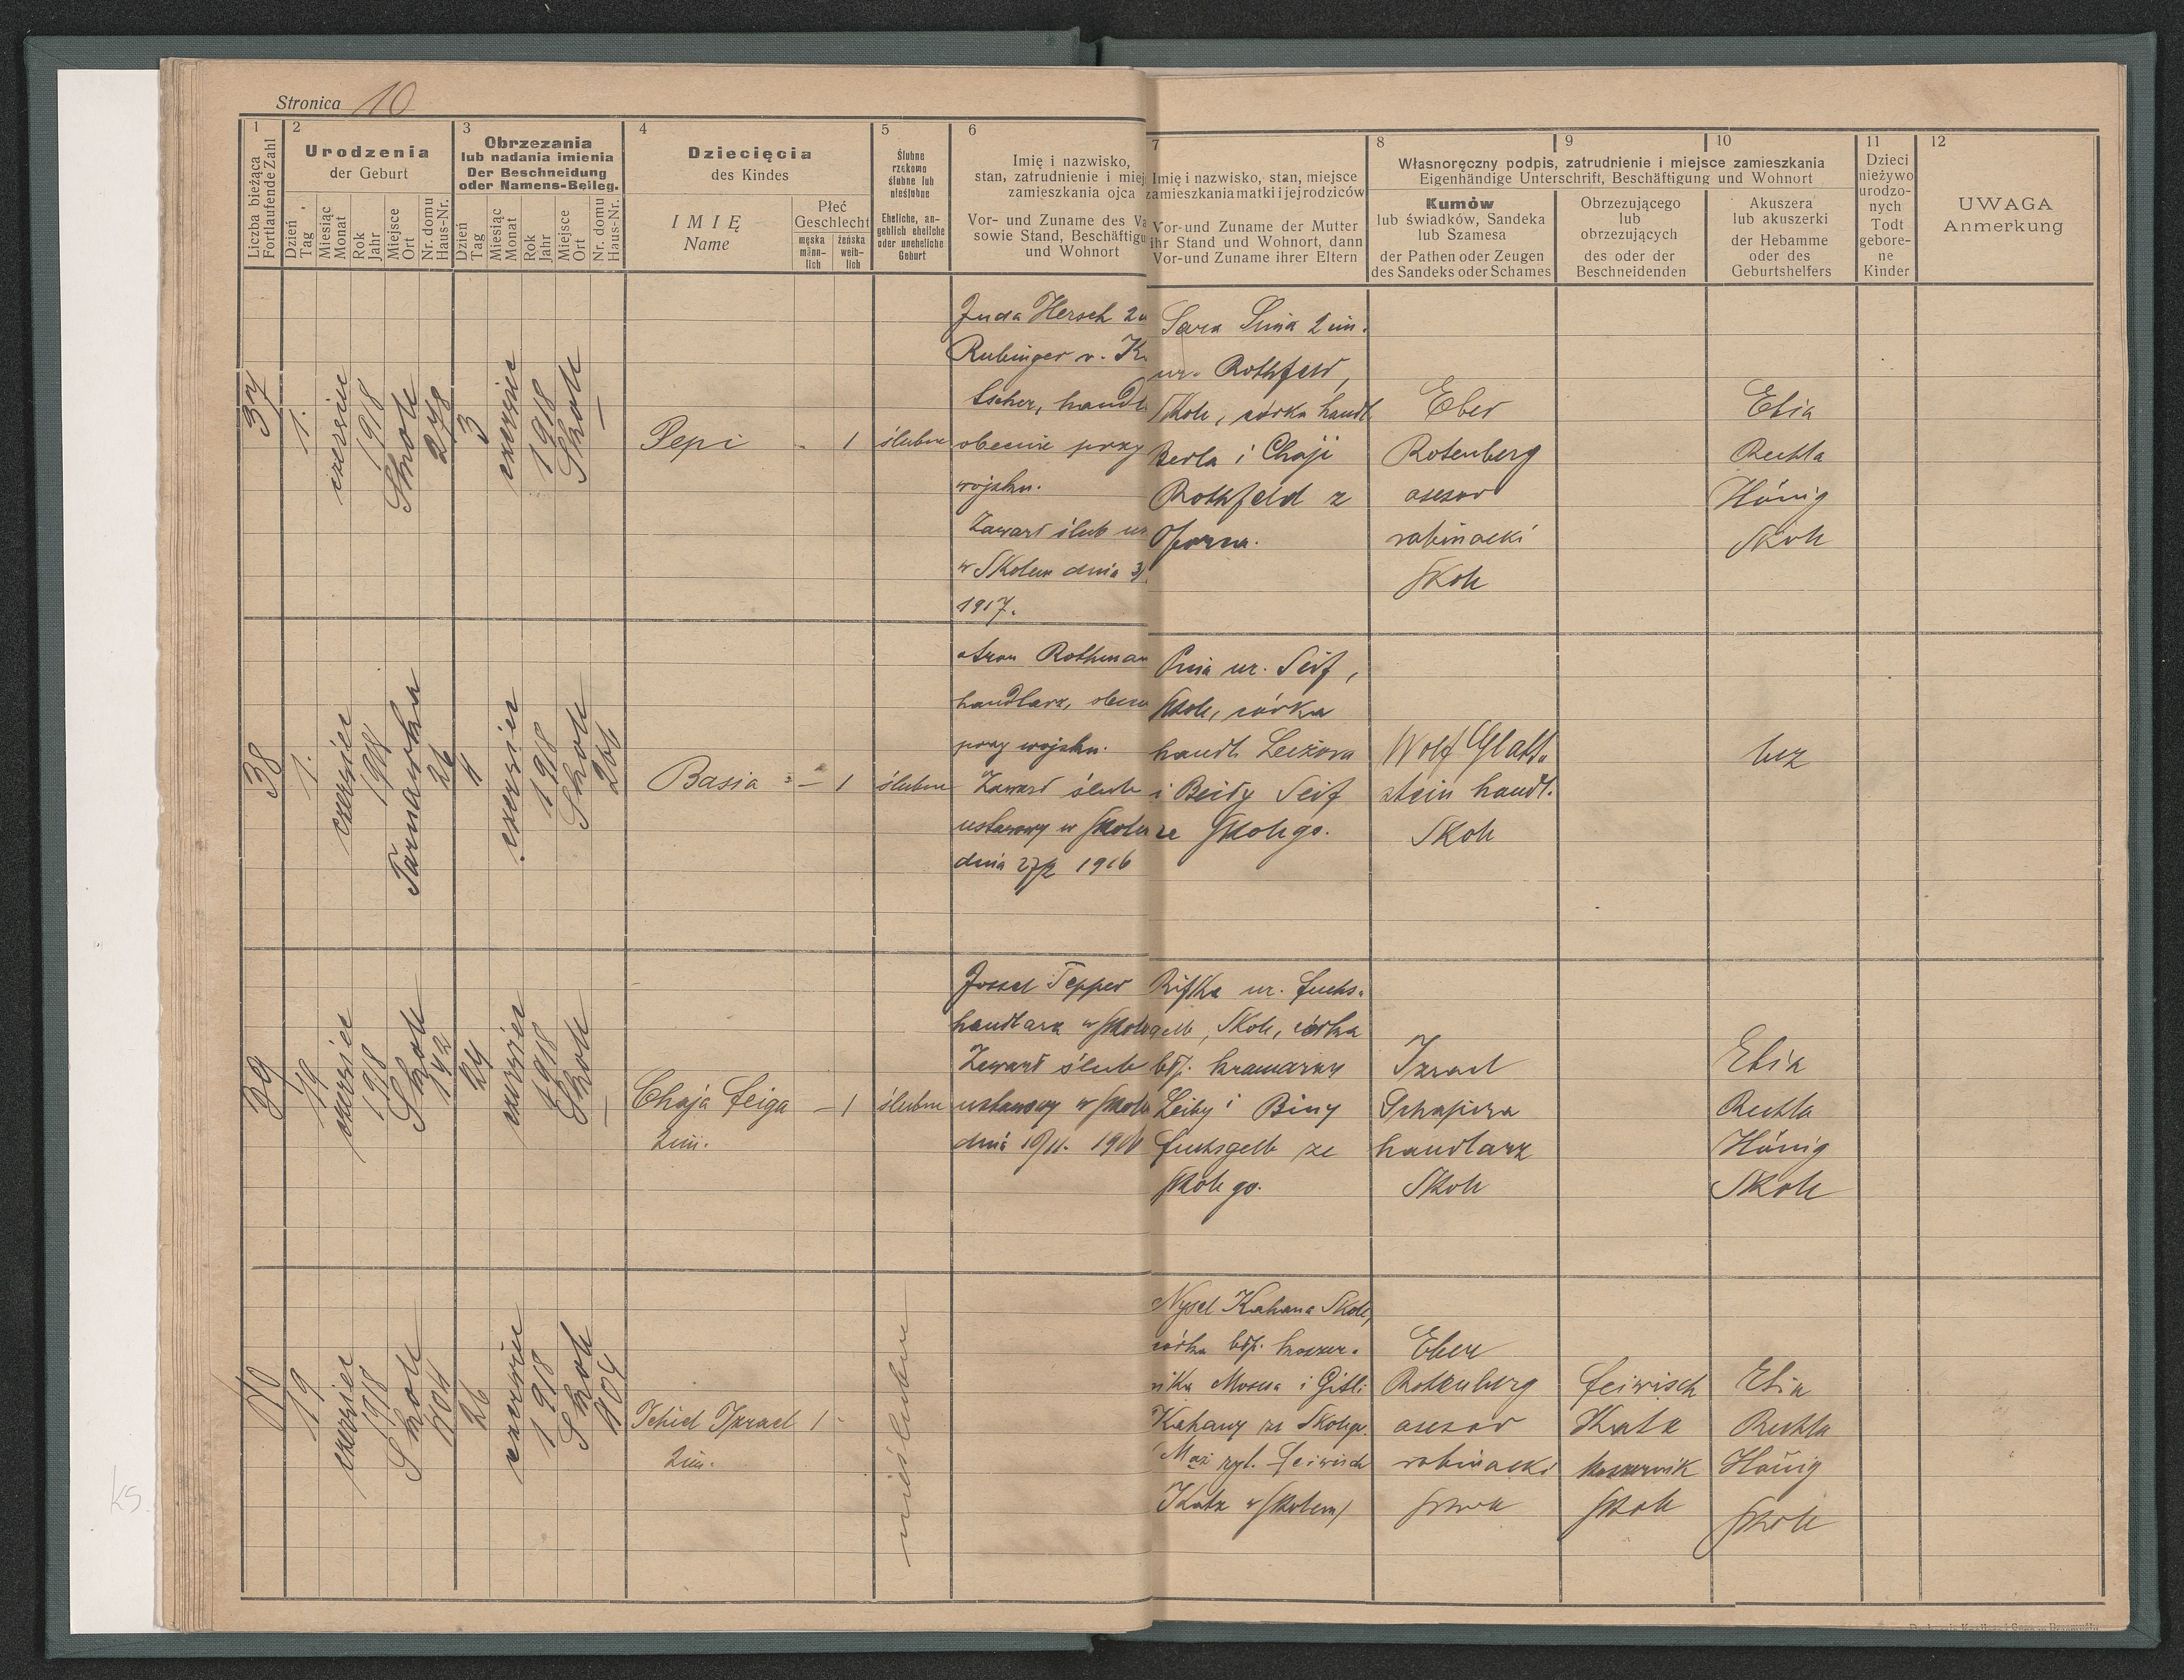 Stronica 10
1
Liczba bieżąca
Fortlaufende Zahl
2
Urodzenia
der Geburt
Dzień
Tag
Miesiąc
Monat
Rok
Jahr
Miejsce
Ort
Nr. domu
Haus-Nr.
3
Obrzezania
lub nadania imienia
Der Beschneidung
oder Namens-Beileg.
Dzień
Tag
Miesiąc
Monat
Rok
Jahr
Miejsce
Ort
Nr. domu
Haus-Nr.
4
Dziecięcia
des Kindes
IMIĘ
Name
Płeć
Geschlecht
męska
männ-
lich
żeńska
weib-
lich
5
Ślubne
rzekomo
ślubne lub
nieślubne
Eheliche, an-
geblich eheliche
oder uneheliche
Geburt
6
Imię i nazwisko,
stan, zatrudnienie i miej
zamieszkania ojca
Vor- und Zuname des Va
sowie Stand, Beschäftigu
und Wohnort
7
Imię i nazwisko, stan, miejsce
zamieszkania matki i jej rodziców
Vor- und Zuname der Mutter
ihr Stand und Wohnort, dann
Vor- und Zuname ihrer Eltern
8
9
10
Własnoręczny podpis, zatrudnienie i miejsce zamieszkania
Eigenhändige Unterschrift, Beschäftigung und Wohnort
Kumów
lub świadków, Sandeka
lub Szamesa
der Pathen oder Zeugen
des Sandeks oder Schames
Obrzezującego
lub
obrzezujących
des oder der
Beschneidenden
Akuszera
lub akuszerki
der Hebamme
oder des
Geburtshelfers
11
Dzieci
nieżywo
urodzo-
nych
Todt
gebore-
ne
Kinder
12
UWAGA
Anmerkung
37
1.
czerwiec
1918
Skole
278
3
czerwiec
1918
Skole
—
Pepi
- 1
ślubne
Juda Hersch 2u
Rubinger v. K.
Escher, handl
obecnie przy
wojsku.
Zawarł ślub us
w Skolem dnia 3/
1917.
Sara 2 im.
ur. Rothfeld,
Skole, córka handl
Berla i Chaji
Rothfeld z
Oporca.
Eber
Rotenberg
asesor
rabinacki
Skole
Etia
Rechla
Hönig
Skole
38
1.
czerwiec
1918
Tarnawka
26
11
czerwiec
1918
Skole
266
Basia
— 1
ślubne
Aron Rothman
handlarz, obecn
przy wojsku.
Zawarł ślub
ustawowy w Skolem
dnia 1916
ur. Seif,
Skole, córka
handl. Leizora
i Beidy Seif
ze Skolego.
Wolf Glatt-
stein handl.
Skole
bez
39
19
czerwiec
1918
Skole
192
24
czerwiec
1918
Skole
—
Chaja Feiga
2 im.
— 1
ślubne
Jossel Tepper
handlarz w Skolem
Zawarł ślub
ustawowy w Skole
dnia 10/11. 1916
Rifka ur. Fuchs-
gelb, Skole, córka
błp. kramarzy
Leiby i Biny
Fuchsgelb ze
Skolego.
Izrael
Schapira
handlarz
Skole
Etia
Rechla
Hönig
Skole
40
19
czerwiec
1918
Skole
404
26
czerwiec
1918
Skole
404
Jechiel Izrael
2 im.
1 -
nieślubne
Nysel Kahana Skole,
córka błp. koszer-
nika Mosesa i Gitli
Kahany ze Skolego.
Mąż ryt. Feiwisch
Katz w Skolem)
Eber
Rotenberg
asesor
rabinacki
Skole
Feiwisch
Katz
koszernik
Skole
Etia
Rechla
Hönig
Skole
ks.